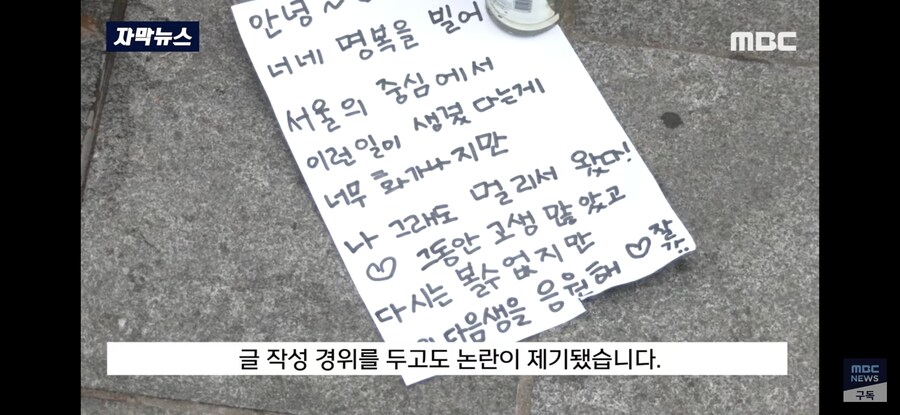 자막뉴스
MBC
안녕~
너네 명복을 빌어
서울의 중심에서
이런일이 생겼다는게
너무 화가나지만
나 그래도 멀리서 왔다!
♡ 그동안 고생 많았고
다시는 볼수 없지만
다음생을 응원해 ♡ 잘가..
글 작성 경위를 두고도 논란이 제기됐습니다.
MBC
NEWS
구독